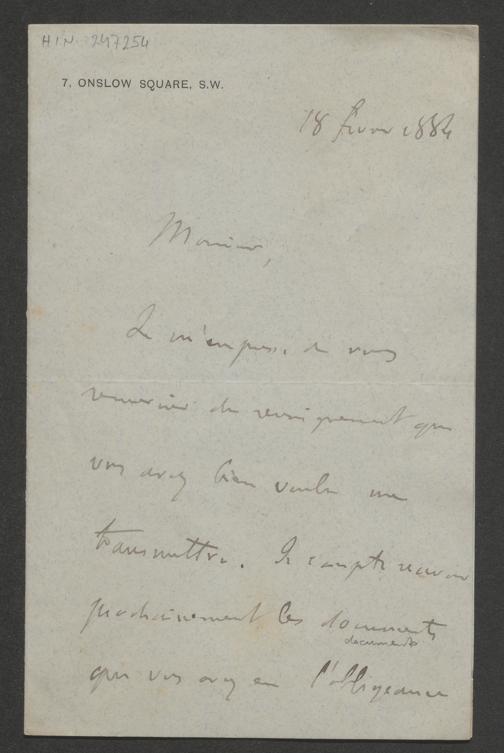 HIN. 247254
7, ONSLOW SQUARE, S.W.
18 février 1884
Monsieur,
Je m'empresse de vous
remercier du renseignement que
vous avez bien voulu me
transmettre. Je compte recevoir
prochainement les documents
documents
que vous avez eu l'obligeance